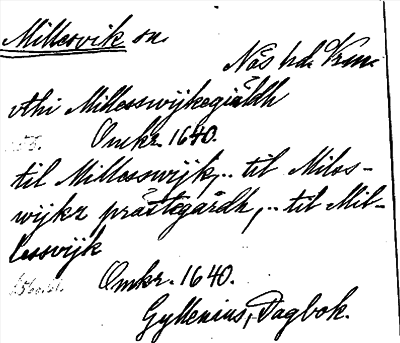 Millesvik sn.
Näs hd. Vrm.
Ahi Millesswijkegiäldh
Omkr. 1640.
til Millesswijk,.. til Miles-
wijkz prästegårdh,.. til Mil-
lessvijk
Omkr. 1640.
Gyllenius, Dagbok.